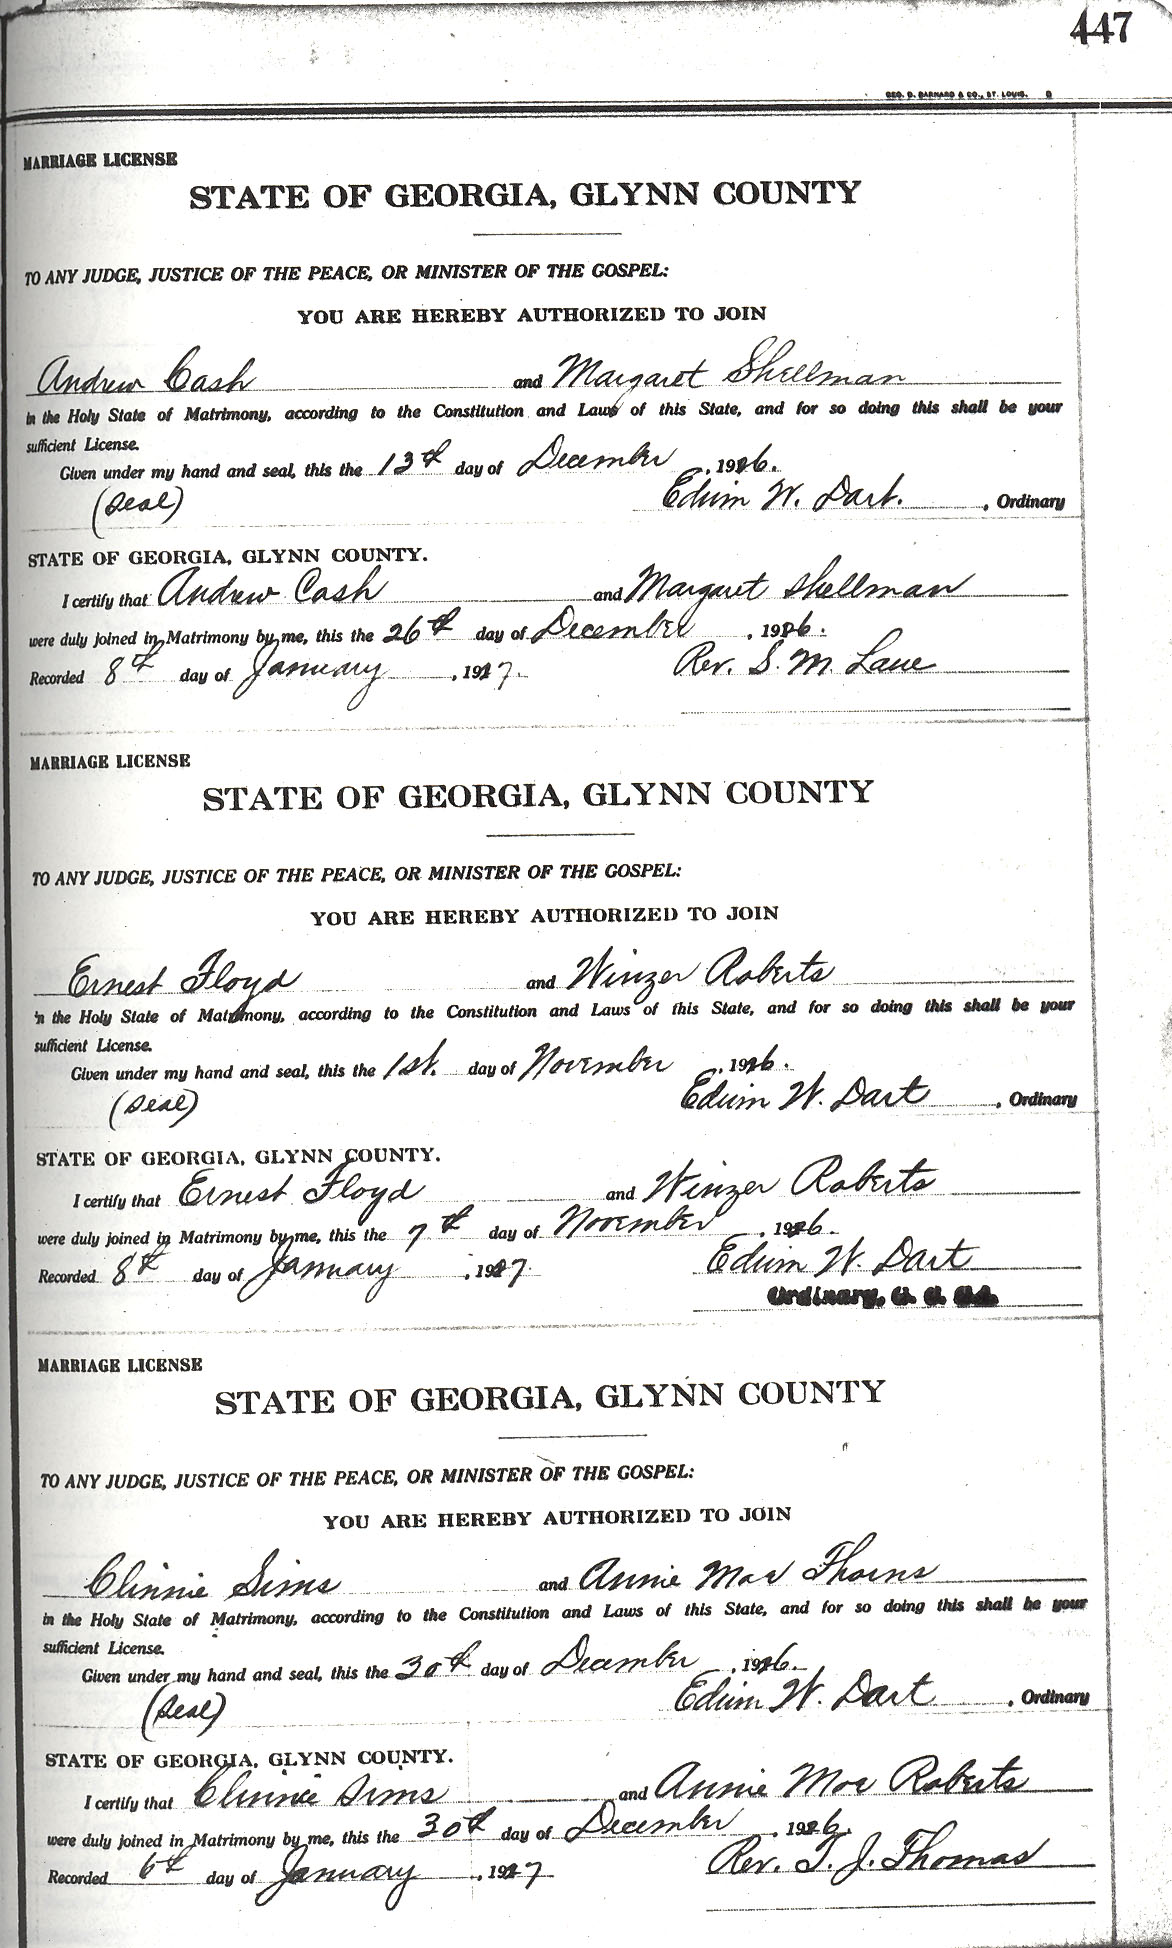 447
GEO. D. BARNARD & CO., ST. LOUIS.
MARRIAGE LICENSE
STATE OF GEORGIA, GLYNN COUNTY
TO ANY JUDGE, JUSTICE OF THE PEACE, OR MINISTER OF THE GOSPEL:
YOU ARE HEREBY AUTHORIZED TO JOIN
Andrew Cash and Margaret Shellman
in the Holy State of Matrimony, according to the Constitution and Laws of this State, and for so doing this shall be your
sufficient License.
Given under my hand and seal, this the 13th day of December, 1926.
(Seal) Edwin W. Dart. , Ordinary
STATE OF GEORGIA, GLYNN COUNTY.
I certify that Andrew Cash and Margaret Shellman
were duly joined in Matrimony by me, this the 26th day of December, 1926.
Recorded 8th day of January, 1927. Rev. S. M. Laue
MARRIAGE LICENSE
STATE OF GEORGIA, GLYNN COUNTY
TO ANY JUDGE, JUSTICE OF THE PEACE, OR MINISTER OF THE GOSPEL:
YOU ARE HEREBY AUTHORIZED TO JOIN
Ernest Floyd and Winzer Roberts
in the Holy State of Matrimony, according to the Constitution and Laws of this State, and for so doing this shall be your
sufficient License.
Given under my hand and seal, this the 1st. day of November, 1926.
(Seal) Edwin W. Dart , Ordinary
STATE OF GEORGIA, GLYNN COUNTY.
I certify that Ernest Floyd and Winzer Roberts
were duly joined in Matrimony by me, this the 7th day of November, 1926.
Recorded 8th day of January, 1927. Edwin W. Dart
Ordinary,
MARRIAGE LICENSE
STATE OF GEORGIA, GLYNN COUNTY
TO ANY JUDGE, JUSTICE OF THE PEACE, OR MINISTER OF THE GOSPEL:
YOU ARE HEREBY AUTHORIZED TO JOIN
Clinnie Sims and Annie Mae Thorns
in the Holy State of Matrimony, according to the Constitution and Laws of this State, and for so doing this shall be your
sufficient License.
Given under my hand and seal, this the 30th day of December, 1926.
(Seal) Edwin W. Dart , Ordinary
STATE OF GEORGIA, GLYNN COUNTY.
I certify that Clinnie Sims and Annie Mae Roberts
were duly joined in Matrimony by me, this the 30th day of December, 1926.
Recorded 6th day of January, 1927 Rev. T. J. Thomas